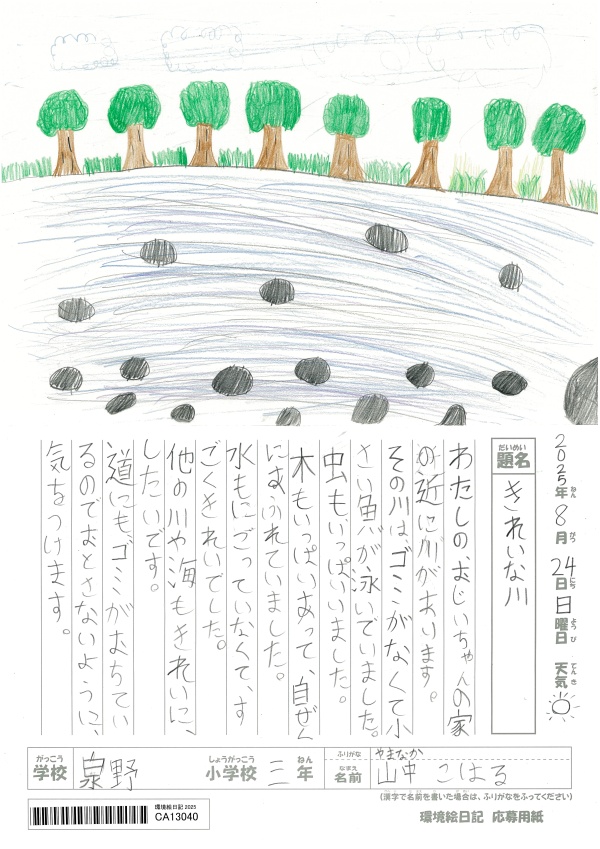 2025年ねん 8月がつ 24日にち 日曜日ようび 天気てんき
題名だいめい きれいな川
わたしの、おじいちゃんの家
の近に川があります。
その川は、ゴミがなくて小
さい魚が泳いでいました。
虫もいっぱいいました。
木もいっぱいあって、自ぜん
にあふれていました。
水もにごっていなくて、す
ごくきれいでした。
他の川や海もきれいに、
したいです。
道にもゴミがおちてい
るのでおとさないように、
気をつけます。
がっこう 学校 泉野 しょうがっこう 小学校 三 ねん 年
ふりがな やまなか
なまえ 名前 山中 こはる
(漢字で名前を書いた場合は、ふりがなをふってください)
環境絵日記 2025
CA13040
環境絵日記 応募用紙